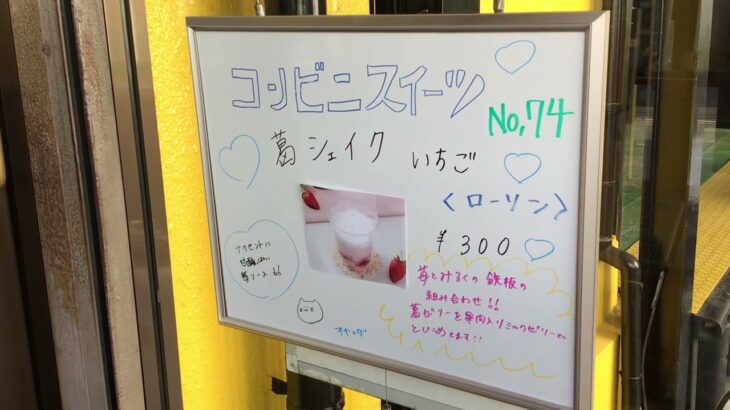 コンビニスイーツ
No,74
葛シェイク いちご
〈ローソン〉
¥300
アクセントに
甘酸っぱい
苺ソース
苺とみるくの鉄板の
組み合わせ!!
葛ゼリーを果肉入りミルクゼリーで
とじこめてます!!